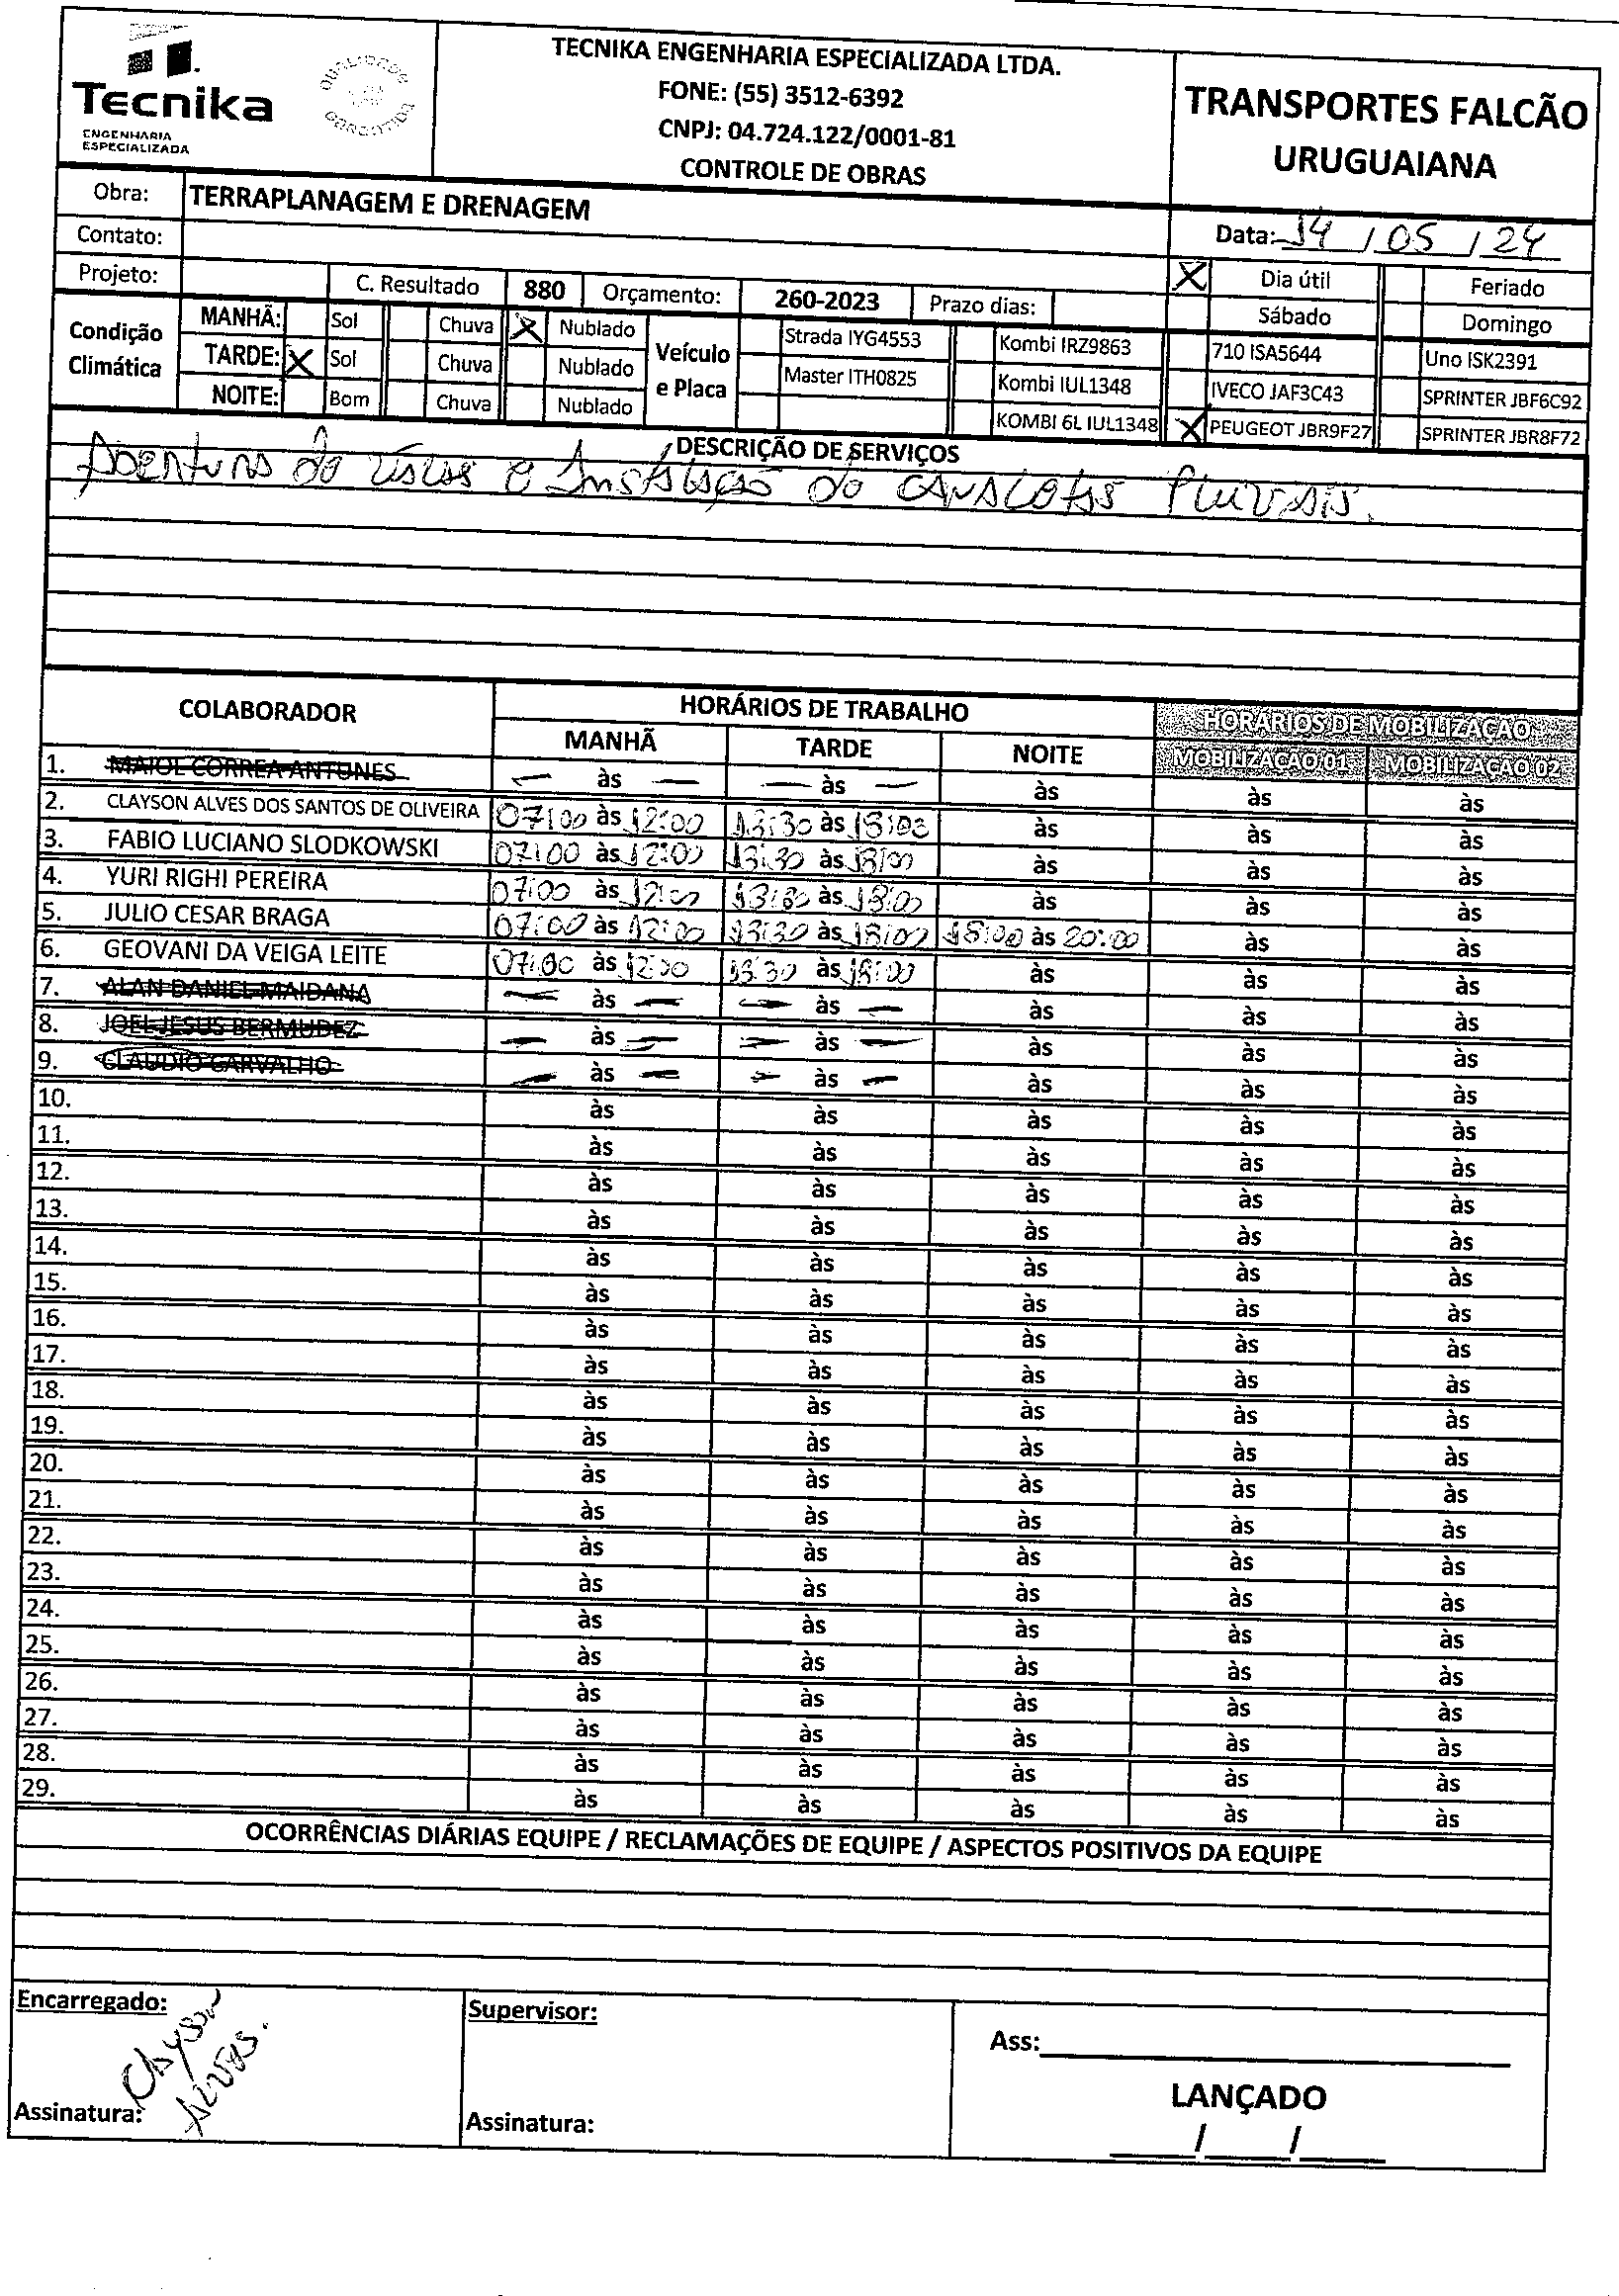 Tecnika
ENGENHARIA
ESPECIALIZADA
QUALIDADE
GARANTIDA
TECNIKA ENGENHARIA ESPECIALIZADA LTDA.
FONE: (55) 3512-6392
CNPJ: 04.724.122/0001-81
CONTROLE DE OBRAS
TRANSPORTES FALCÃO
URUGUAIANA
Obra: TERRAPLANAGEM E DRENAGEM
Contato:
Data: 14 / 05 / 24
Projeto: C. Resultado 880 Orçamento: 260-2023 Prazo dias:
X Dia útil Feriado
Sábado Domingo
Condição Climática
MANHÃ: Sol Chuva X Nublado
TARDE: X Sol Chuva Nublado
NOITE: Bom Chuva Nublado
Veículo e Placa
Strada IYG4553 Kombi IRZ9863 710 ISA5644 Uno ISK2391
Master ITH0825 Kombi IUL1348 IVECO JAF3C43 SPRINTER JBF6C92
KOMBI 6L IUL1348 X PEUGEOT JBR9F27 SPRINTER JBR8F72
DESCRIÇÃO DE SERVIÇOS
Abertura de e Instalação de CANALETAS PLUVIAIS.
COLABORADOR HORÁRIOS DE TRABALHO HORÁRIOS DE MOBILIZAÇÃO
MANHÃ TARDE NOITE MOBILIZAÇÃO 01 MOBILIZAÇÃO 02
1. MAIOL CORREA ANTUNES — às — — às — às às às
2. CLAYSON ALVES DOS SANTOS DE OLIVEIRA 07:00 às 12:00 13:30 às 18:00 às às às
3. FABIO LUCIANO SLODKOWSKI 07:00 às 12:00 13:30 às 18:00 às às às
4. YURI RIGHI PEREIRA 07:00 às 12:00 13:30 às 18:00 às às às
5. JULIO CESAR BRAGA 07:00 às 12:00 13:30 às 18:00 18:00 às 20:00 às às
6. GEOVANI DA VEIGA LEITE 07:00 às 12:00 13:30 às 18:00 às às às
7. ALAN DANIEL MAIDANA — às — — às — às às às
8. JOEL JESUS BERMUDEZ — às — — às — às às às
9. CLAUDIO CARVALHO — às — — às — às às às
10. às às às às às
11. às às às às às
12. às às às às às
13. às às às às às
14. às às às às às
15. às às às às às
16. às às às às às
17. às às às às às
18. às às às às às
19. às às às às às
20. às às às às às
21. às às às às às
22. às às às às às
23. às às às às às
24. às às às às às
25. às às às às às
26. às às às às às
27. às às às às às
28. às às às às às
29. às às às às às
OCORRÊNCIAS DIÁRIAS EQUIPE / RECLAMAÇÕES DE EQUIPE / ASPECTOS POSITIVOS DA EQUIPE
Encarregado: Supervisor:
Clayson
Alves.
Ass:
LANÇADO
Assinatura: Assinatura:
/ /